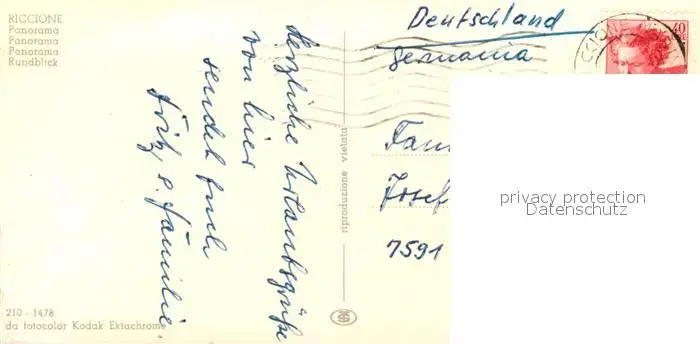 RICCIONE
Panorama
Panorama
Panorama
Rundblick
Herzliche Urlaubsgrüße
von hier
sendet Euch
Fritz, u. Familie.
210 - 1478
da fotocolor Kodak Ektachrome
riproduzione vietata
Deutschland
Germania
40
Fam
Josef
7591
privacy protection
Datenschutz